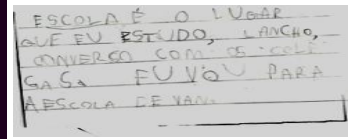 ESCOLA É O LUGAR
QUE EU ESTUDO, LANCHO,
CONVERSO COM OS COLE
GAS. EU VOU PARA
A ESCOLA DE VAN.